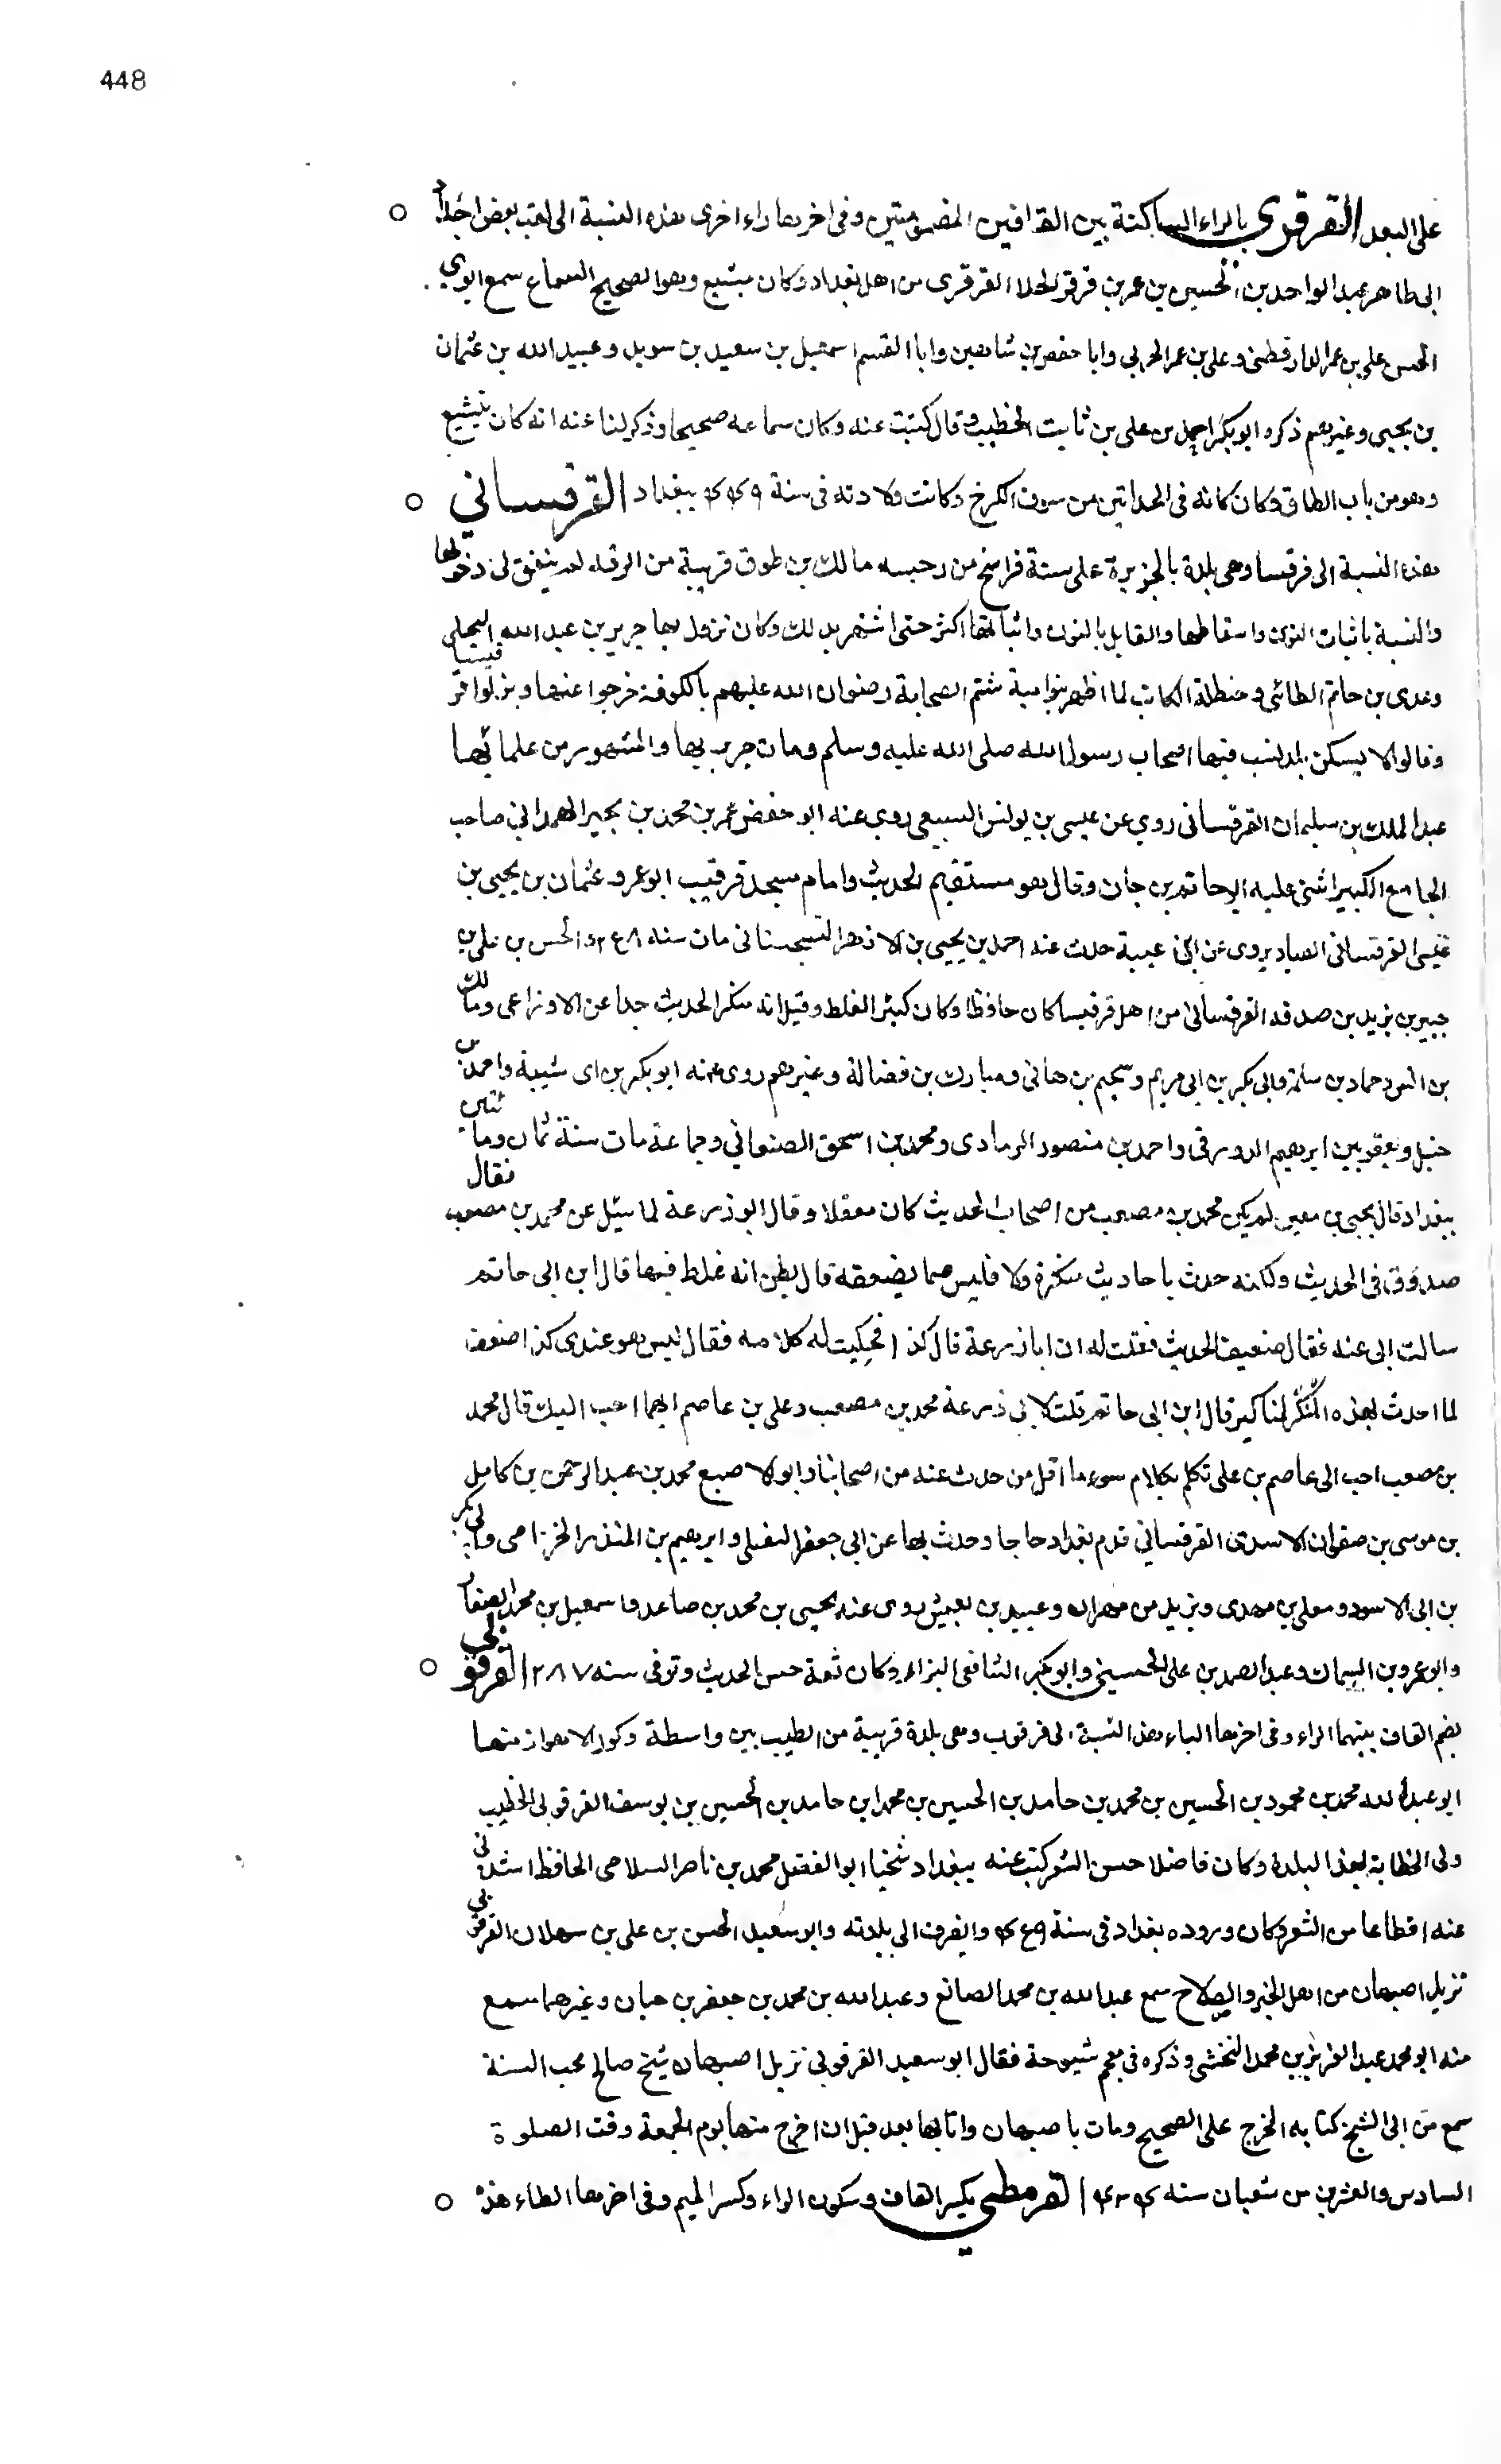 448
على البعد القرقري بالراء الساكنة بين القافين المضمومتين وفى اخرها راء اخرى هذه النسبة الى لقب بعض اجداد
ابى طاهر عبد الواحد بن الحسين بن عمر بن قرقر الحذا القرقرى من اهل بغداد وكان يتشيع وهو الصحيح السماع سمع ابوي
الحسن على بن عمر الدارقطنى وعلى بن عمر الحربى وابا حفص بن شاهين وابا القسم اسمعيل بن سعيد بن سويد وعبيد الله بن عثمان
بن يحيى وغيرهم ذكره ابو بكر احمد بن على بن ثابت الخطيب وقال كتبت عنه وكان سماعه صحيحا وذكر لنا عنه انه كان يتشيع
وهو من باب الطاق وكان كانه فى الحدائين من سوق الكرخ وكانت ولادته فى سنة ببغداد القرقساني
هذه النسبة الى قرقسا وهى بلدة بالجزيرة على ستة فراسخ من رحبه مالك بن طوق قريبة من الرقه لم يتفق لى دخولها
والنسبة باثبات النون واسقاطها والقايل بالنون واثباتها اكثر حتى اشتهر بذلك وكان نزول بها جرير بن عبد الله البجلى
وعدى بن حاتم الطائى وحنظلة الكاتب لما اظهر بنو امية شتم الصحابة رضوان الله عليهم بالكوفة خرجوا عنها ونزلوا قرقيسا
وقالوا لا يسكن بلد يسب فيها اصحاب رسول الله صلى الله عليه وسلم ومات جرير بها والمشهور من علمائها
عبد الملك بن سليمان القرقسانى روي عن عيسى بن يونس السبيعى روى عنه ابو حفص عمر بن محمد بن بجير الهمدانى صاحب
الجامع الكبير اثنى عليه ابو حاتم بن حبان وقال هو مستقيم الحديث وامام مسجد قرقيب ابو عمرو عثمان بن يحيى بن
عيسى القرقسانى الصياد يروى عن ابن عيينة حدث عنه احمد بن يحيى بن الازهر السجستانى مات سنه والحسن بن على بن
جبير بن يزيد بن صدقه القرقسانى من اهل قرقيسا كان حافظا وكان كثير الغلط وقيل انه منكر الحديث جدا عن الاوزاعى ومالك
بن انس وحماد بن سلمة وابى بكر بن ابى مريم وسحيم بن هانى ومبارك بن فضالة وغيرهم روى عنه ابو بكر بن ابى شيبة واحمد بن
حنبل ويعقوب بن ابرهيم الدورقى واحمد بن منصور الرمادى ومحمد بن اسحق الصنعاني وجماعة مات سنة ثمان ومائتين
ببغداد قال يحيى بن معين لم يكن محمد بن مصعب من اصحاب الحديث كان مغفلا وقال ابو زرعة لما سئل عن محمد بن مصعب فقال
صدوق فى الحديث ولكنه حدث باحاديث منكرة ولا فليس مما يضعفه قال يظن انه غلط فيها قال ابن ابى حاتم
سالت ابى عنه فقال ضعيف الحديث فقلت له ان ابا زرعة قال كذا فحكيت له كلامه فقال ليس هو عندى كذا ضعف
لما احدث بهذه المناكير قال ابن ابى حاتم قلت لابى زرعة محمد بن مصعب وعلى بن عاصم ايهما احب اليك قال محمد
بن مصعب احب الى عاصم بن على تكلم بكلام سوء ما اقل من حدث عنه من اصحابنا وابو الاصبع محمد بن عبد الرحمن بن كامل
بن موسى بن صفوان الاسدى القرقسانى قدم بغداد حاجا وحدث بها عن ابى جعفر النفيلى وابرهيم بن المنذر الخزامى وابى بكر
بن ابى الاسود ومعلى بن مهدى ويزيد من مهران وعبيد بن يعيش روى عنه يحيى بن محمد بن صاعد واسمعيل بن محمد الصفار
وابو عمرو بن السماك وعبد الصمد بن على الحسينى وابو بكر الشافعى البزاز وكان ثقة حسن الحديث وتوفى سنه ٢٨٧ القرقوبى
بضم القاف بينهما الراء وفى اخرها الباء هذه النسبة الى قرقوب وهى بلدة قريبة من الطيب بين واسطة وكور الاهواز منها
ابو عبد الله محمد بن محمود بن الحسين بن محمد بن حامد بن الحسين بن محمد ابن حامد بن الحسين بن يوسف القرقوبى الخطيب
ولى الخطابة بهذه البلدة وكان فاضلا حسن الشعر كتب عنه ببغداد شيخنا ابو الفضل محمد بن ناصر السلامى الحافظ انشدنى
عنه اقطاعا من الشعر وكان وروده بغداد فى سنة وانصرف الى بلدته وابو سعيد الحسن بن على بن سهلان القرقوبى
نزيل اصبهان من اهل الخير والصلاح سمع عبد الله بن محمد الصائغ وعبد الله بن محمد بن جعفر بن حيان وغيرهما سمع
منه ابو محمد عبد العزيز بن محمد النخشبى وذكره فى معجم شيوخه فقال ابو سعيد القرقوبى نزيل اصبهان شيخ صالح محب السنة
سمع من ابى الشيخ كتابه المخرج على الصحيح ومات باصبهان وانا بها بعد قبل ان اخرج منها يوم الجمعة وقت الصلوة
السادس والعشرين من شعبان سنه القرمطي بكسر القاف وسكون الراء وكسر الميم وفى اخرها الطاء هذه